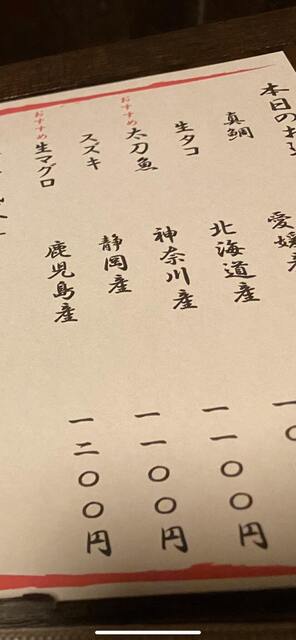 本日のお
真鯛 愛媛産
生タコ 北海道産 一〇
おすすめ 太刀魚 神奈川産 一一〇〇円
スズキ 静岡産 一一〇〇円
おすすめ 生マグロ 鹿児島産 一二〇〇円